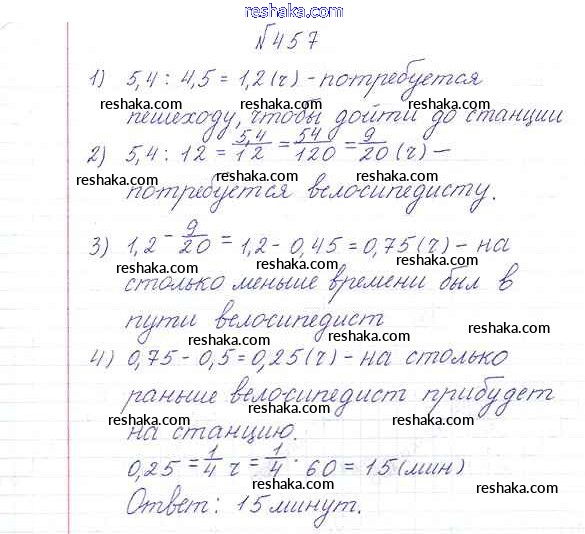 reshaka.com
№457
1) 5,4 : 4,5 = 1,2 (ч) - потребуется
reshaka.com reshaka.com reshaka.com
пешеходу, чтобы дойти до станции
2) 5,4 : 12 = 5,4/12 = 54/120 = 9/20 (ч) -
reshaka.com reshaka.com reshaka.com
потребуется велосипедисту.
3) 1,2 - 9/20 = 1,2 - 0,45 = 0,75 (ч) - на
reshaka.com reshaka.com reshaka.com
столько меньше времени был в
пути велосипедист
reshaka.com
4) 0,75 - 0,5 = 0,25 (ч) - на столько
reshaka.com reshaka.com
раньше велосипедист прибудет
reshaka.com
на станцию.
reshaka.com
0,25 = 1/4 ч = 1/4 · 60 = 15 (мин)
reshaka.com
Ответ: 15 минут.
reshaka.com reshaka.com